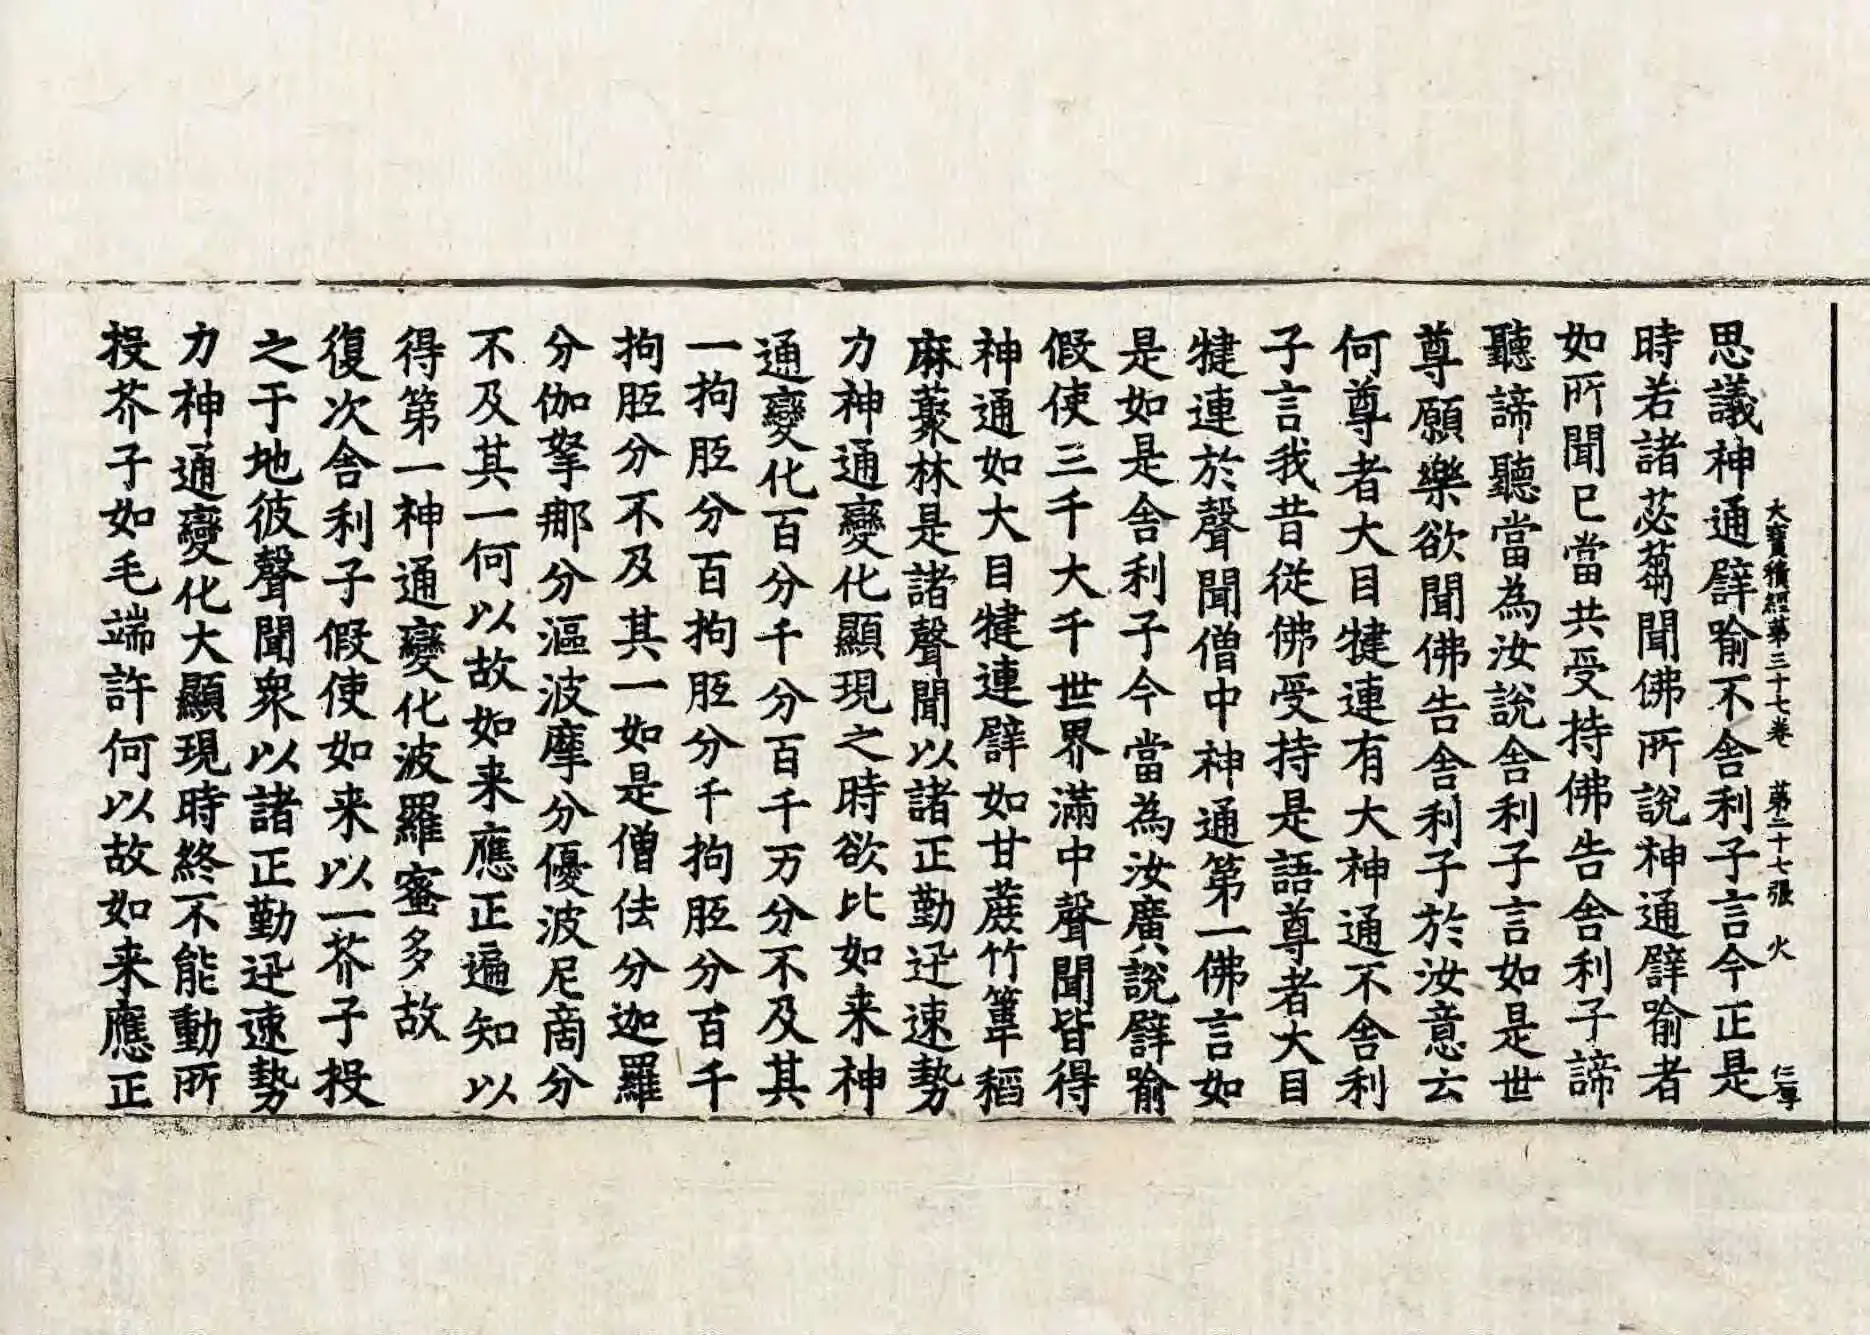 大寶積經第三十七卷 第二十七張 火 仁爭
思議神通譬喻不舍利子言今正是
時若諸苾蒭聞佛所說神通譬喻者
如所聞已當共受持佛告舍利子諦
聽諦聽當為汝說舍利子言如是世
尊願樂欲聞佛告舍利子於汝意云
何尊者大目犍連有大神通不舍利
子言我昔從佛受持是語尊者大目
犍連於聲聞僧中神通第一佛言如
是如是舍利子今當為汝廣說譬喻
假使三千大千世界滿中聲聞皆得
神通如大目犍連譬如甘蔗竹葦稻
麻藂林是諸聲聞以諸正勤迅速勢
力神通變化顯現之時欲比如来神
通變化百分千分百千万分不及其
一拘胝分百拘胝分千拘胝分百千
拘胝分不及其一如是僧佉分迦羅
分伽拏那分漚波摩分優波尼商分
不及其一何以故如来應正遍知以
得第一神通變化波羅蜜多故
復次舍利子假使如来以一芥子投
之于地彼聲聞眾以諸正勤迅速勢
力神通變化大顯現時終不能動所
投芥子如毛端許何以故如来應正